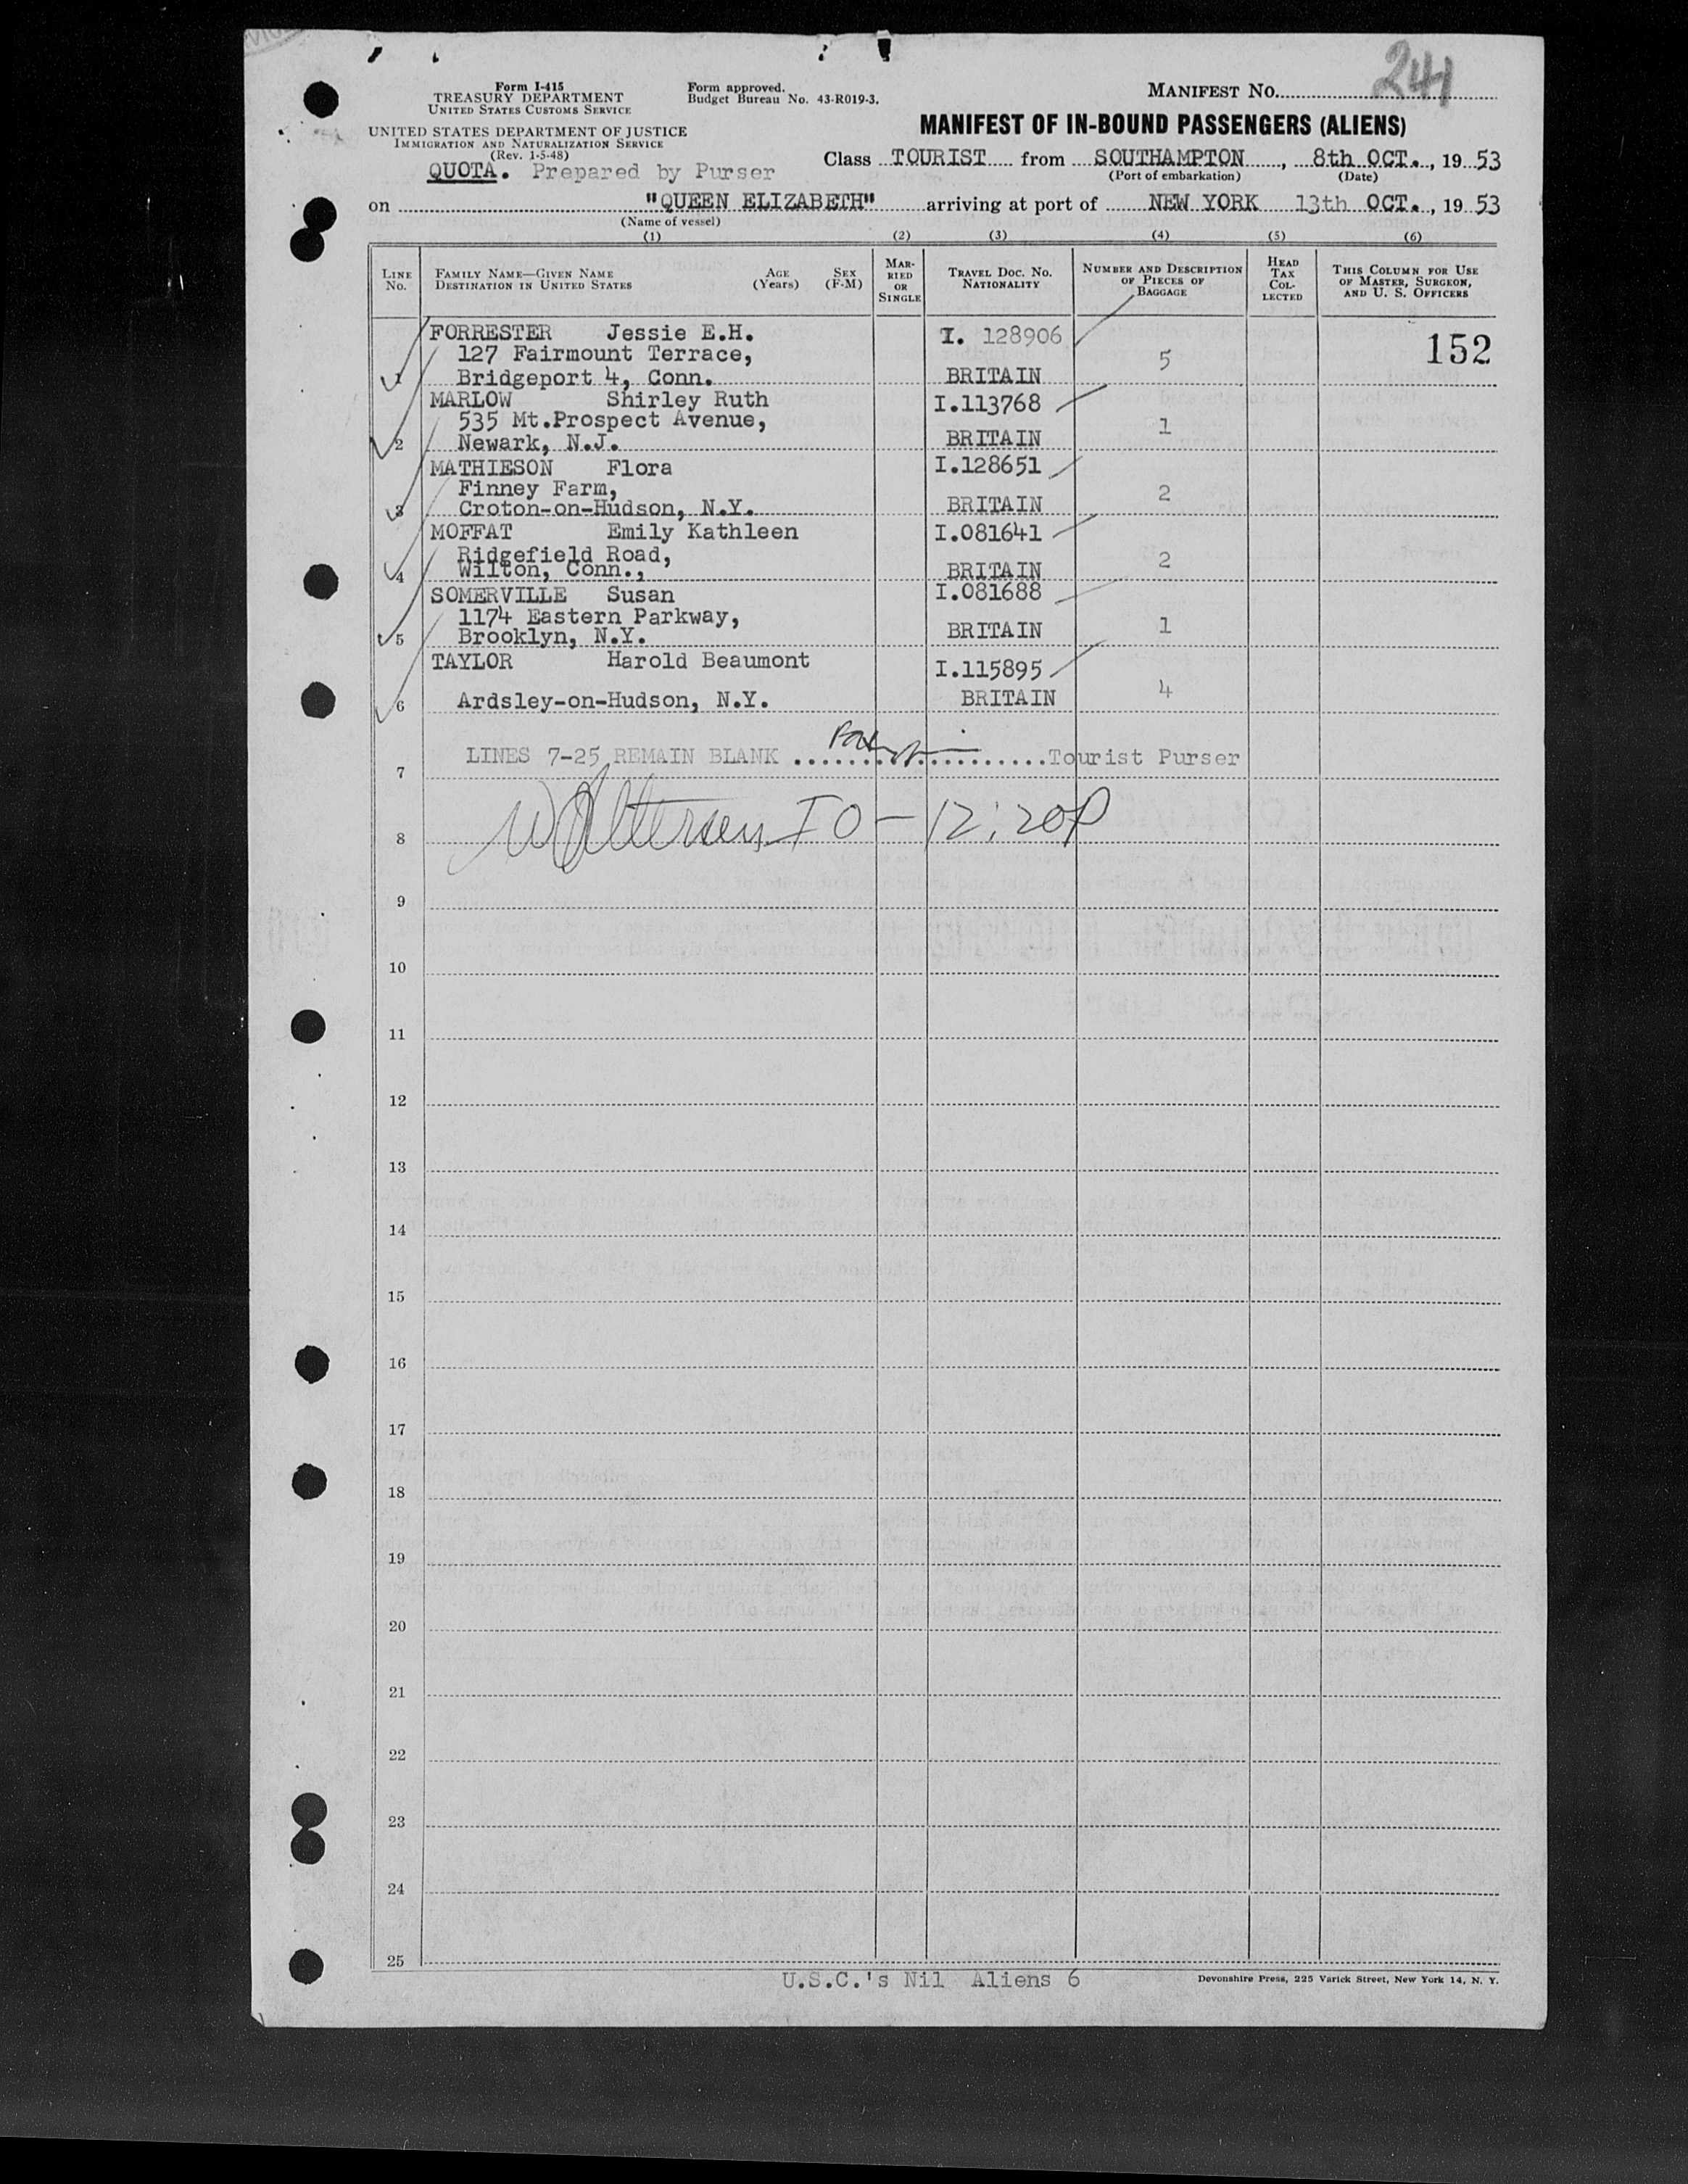 241
Form I-415
TREASURY DEPARTMENT
UNITED STATES CUSTOMS SERVICE
Form approved.
Budget Bureau No. 43-R019-3.
MANIFEST No.
UNITED STATES DEPARTMENT OF JUSTICE
IMMIGRATION AND NATURALIZATION SERVICE
(Rev. 1-5-48)
MANIFEST OF IN-BOUND PASSENGERS (ALIENS)
QUOTA. Prepared by Purser
Class TOURIST from SOUTHAMPTON, 8th OCT., 19 53
(Port of embarkation) (Date)
on "QUEEN ELIZABETH" arriving at port of NEW YORK 13th OCT., 19 53
(Name of vessel)
(1) (2) (3) (4) (5) (6)
LINE No.
FAMILY NAME—GIVEN NAME
DESTINATION IN UNITED STATES
AGE (Years)
SEX (F-M)
MARRIED OR SINGLE
TRAVEL DOC. NO. NATIONALITY
NUMBER AND DESCRIPTION OF PIECES OF BAGGAGE
HEAD TAX COLLECTED
THIS COLUMN FOR USE OF MASTER, SURGEON, AND U. S. OFFICERS
152
FORRESTER Jessie E.H. I. 128906
127 Fairmount Terrace, 5
1 Bridgeport 4, Conn. BRITAIN
MARLOW Shirley Ruth I.113768
535 Mt.Prospect Avenue, 1
2 Newark, N.J. BRITAIN
MATHIESON Flora I.128651
Finney Farm, 2
3 Croton-on-Hudson, N.Y. BRITAIN
MOFFAT Emily Kathleen I.081641
Ridgefield Road, 2
4 Wilton, Conn., BRITAIN
SOMERVILLE Susan I.081688
1174 Eastern Parkway, 1
5 Brooklyn, N.Y. BRITAIN
TAYLOR Harold Beaumont I.115895
6 Ardsley-on-Hudson, N.Y. BRITAIN 4
LINES 7-25 REMAIN BLANK ....................Tourist Purser
7
8 IO - 12:20P
9
10
11
12
13
14
15
16
17
18
19
20
21
22
23
24
25
U.S.C.'s Nil Aliens 6
Devonshire Press, 225 Varick Street, New York 14, N. Y.